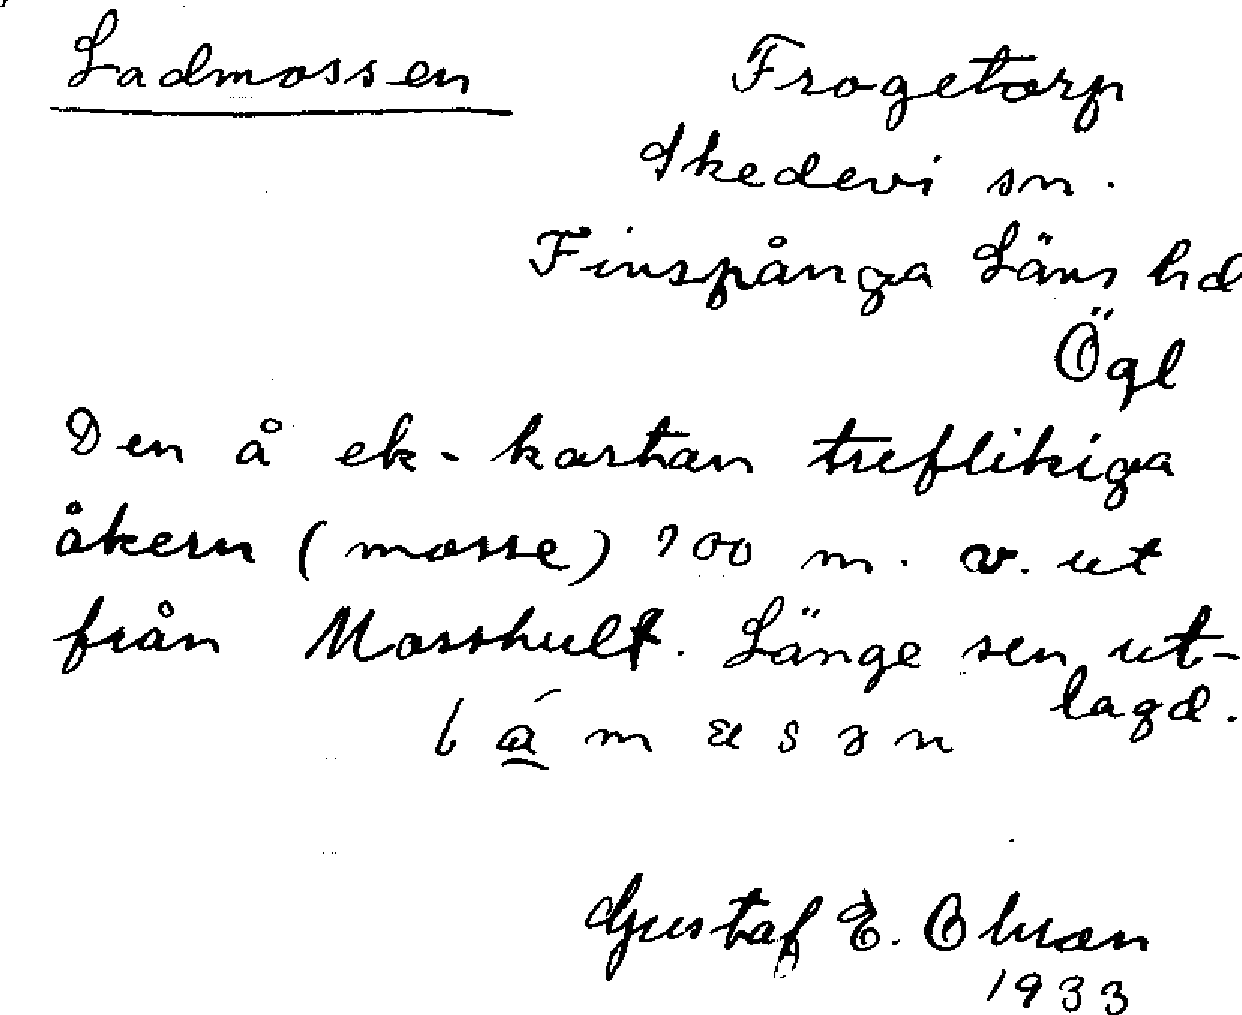 Ladmossen
Frogetorp
Skedevi sn.
Finspånga Läns hd
Ögl
Den å ek-kartan treflikiga
åkern (mosse) 900 m. v. ut
från Mosshult. Länge sen ut-
lagd.
Gustaf E. Olsson
1933